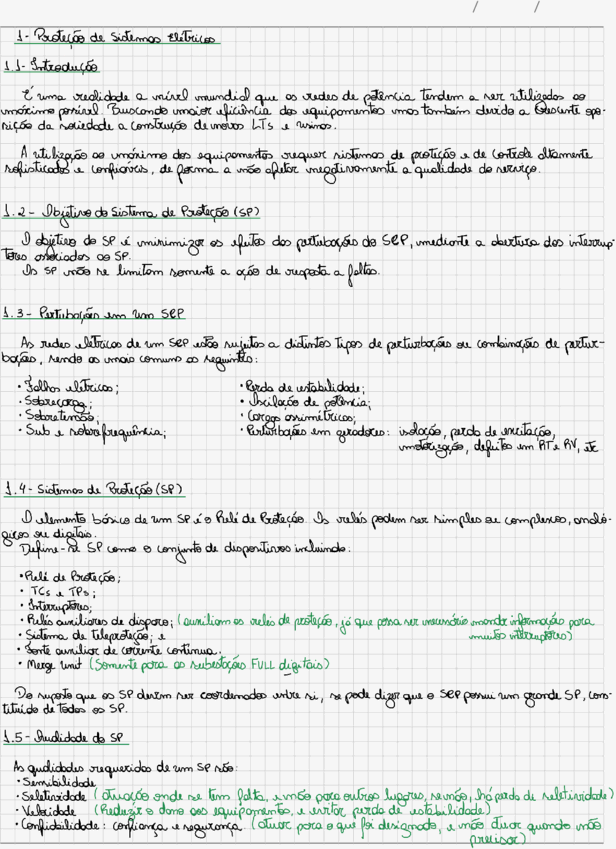 / /
1- Proteção de Sistemas Elétricos
1.1- Introdução
É uma realidade a nível mundial que as redes de potência tendem a ser utilizadas ao
máximo possível. Buscando maior eficiência dos equipamentos mas também devido a Crescente opo-
sição da sociedade a construção de novas LTs e usinas.
A utilização ao máximo dos equipamentos requer sistemas de proteção e de controle altamente
sofisticados e confiáveis, de forma a não afetar negativamente a qualidade do serviço.
1.2- Objetivo do Sistema de Proteção (SP)
O objetivo do SP é minimizar os efeitos das pertubações do SEP, mediante a abertura dos interrup-
tores associados ao SP.
Os SP não se limitam somente a ação de resposta a faltas.
1.3- Pertubações em um SEP
As redes elétricas de um SEP estão sujeitas a distintos tipos de perturbações ou combinação de pertur-
bações, sendo as mais comuns as seguintes:
• Falhas elétricas; • Perda de estabilidade;
• Sobrecarga; • Oscilação de potência;
• Sobretensão; • Cargas assimétricas;
• Sub e sobrefrequência; • Perturbações em geradores: isolação, perda de excitação,
motorização, defeitos em RT e RV, etc
1.4- Sistemas de Proteção (SP)
O elemento básico de um SP é o Relé de Proteção. Os relés podem ser simples ou complexos, analó-
gicos ou digitais.
Define-se SP como o conjunto de dispositivos incluindo:
• Relé de Proteção;
• TCs e TPs;
• Interruptores;
• Relés auxiliares de disparo; (auxiliam os relés de proteção, já que possa ser necessário mandar informação para
muitos interruptores)
• Sistema de Teleproteção; e
• Fonte auxiliar de corrente contínua.
• Merge Unit (Somente para as subestações FULL digitais)
De suposto que os SP devem ser coordenados entre si, se pode dizer que o SEP possui um grande SP, cons-
tituído de todos os SP.
1.5- Qualidade do SP
As qualidades requeridas de um SP são:
• Sensibilidade
• Seletividade (atuação onde se tem falta, e não para outros lugares, se não, há perda de seletividade)
• Velocidade (Reduzir o dano aos equipamento, e evitar perda de estabilidade)
• Confiabilidade: confiança e segurança. (atuar para o que foi designado, e não atuar quando não
precisar)